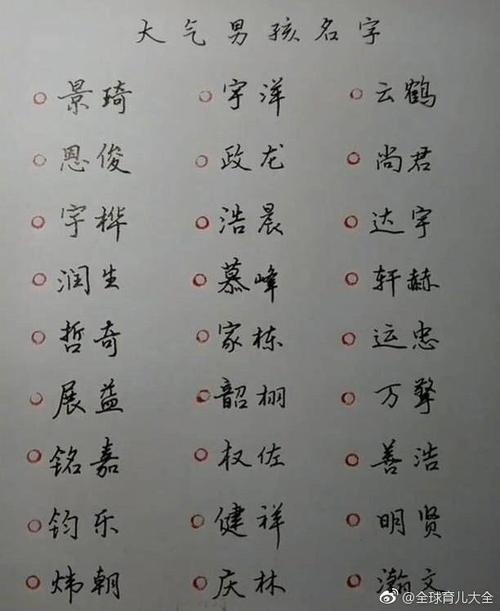 大气男孩名字
景琦 宇洋 云鹤
恩俊 政龙 尚君
宇桦 浩晨 达宇
润生 慕峰 轩赫
哲奇 家栋 运忠
展益 韶栩 万擎
铭嘉 权佐 善浩
钧乐 健祥 明贤
炜朝 庆林 瀚文
@全球育儿大全